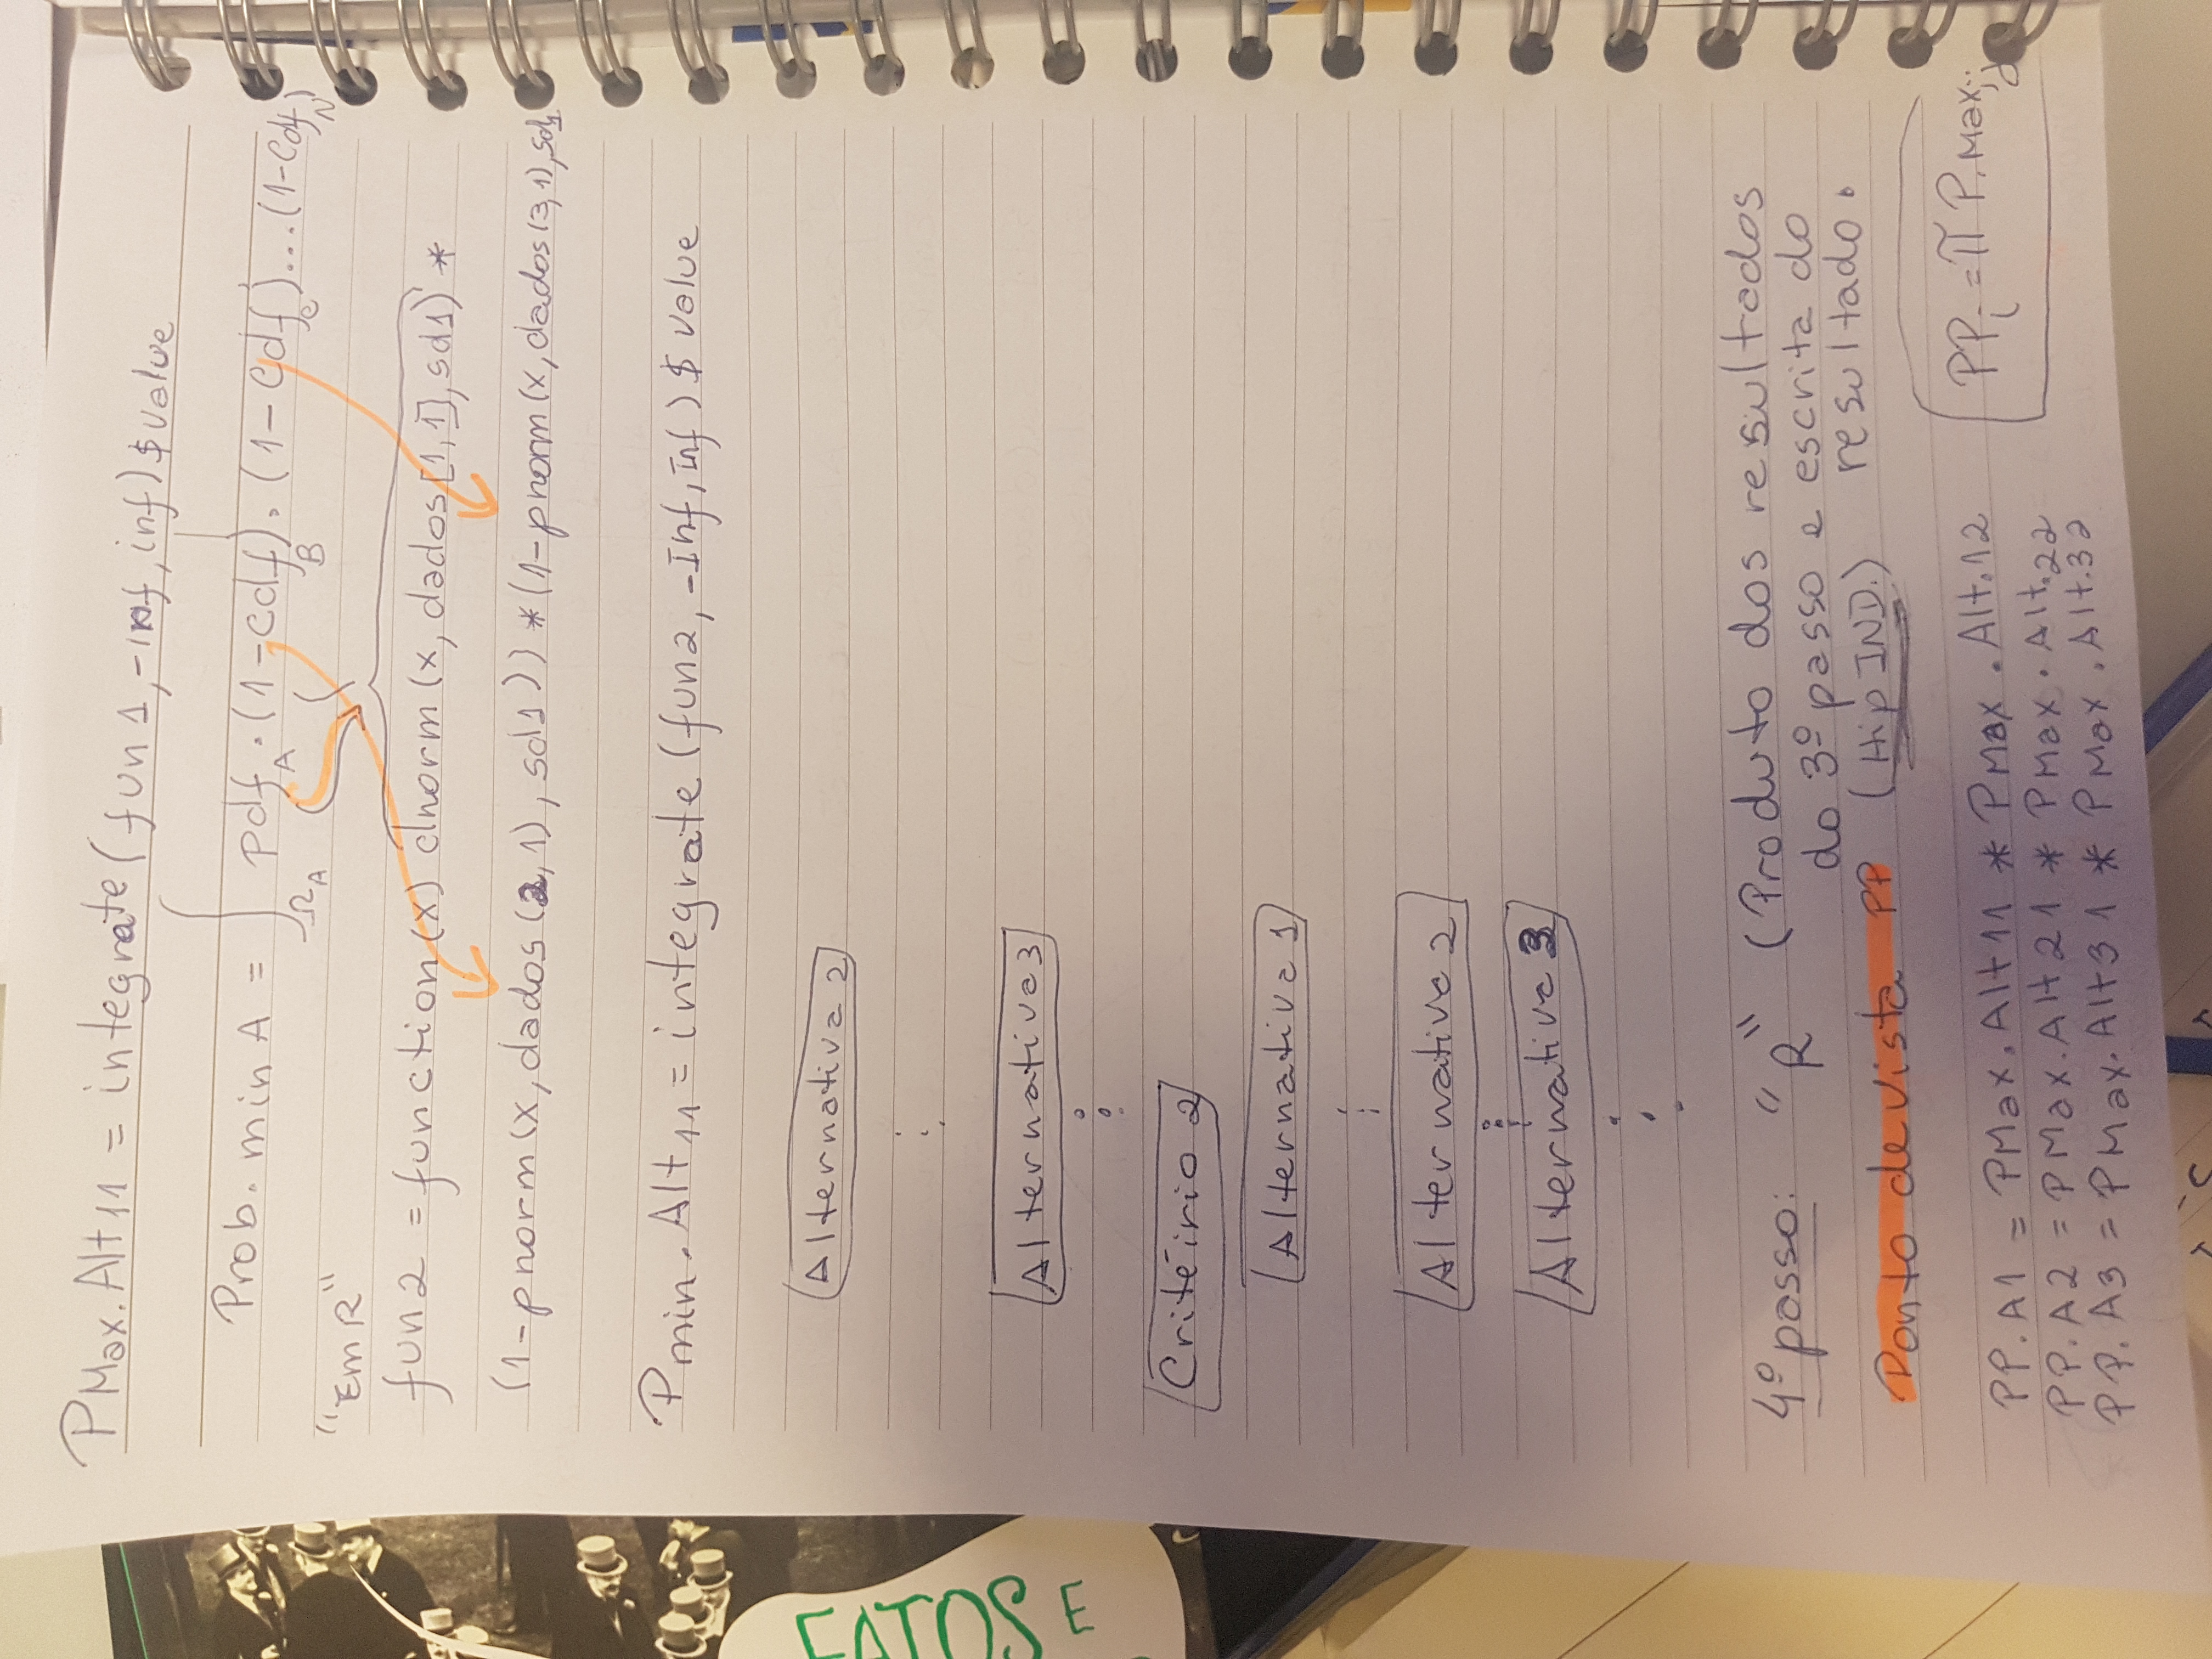 PMax.Alt11 = integrate(fun1,-inf,inf)$value
Prob. min A = ∫ΩA pdfA.(1-cdfB).(1-cdfc)...(1-cdfN)
"Em R"
fun2 = function(x) dnorm(x, dados[1,1],sd1) *
(1-pnorm(x,dados(2,1),sd1))*(1-pnorm(x,dados(3,1),sd1
Pmin.Alt11 = integrate(fun2,-Inf,Inf)$value
Alternativa 2
Alternativa 3
Critéirio 2
Alternativa 1
Alternativa 2
Alternativa 3
4º passo: "R" (Produto dos resultados
do 3º passo e escrita do
resultado.
Ponto de vista PP (Hip IND.)
PPi = π P.Maxij
PP.A1 = PMax.Alt11 * PMax.Alt.12
PP.A2 = PMax.Alt21 * PMax.Alt.22
PP.A3 = PMax.Alt31 * PMax.Alt.32
EATOS E